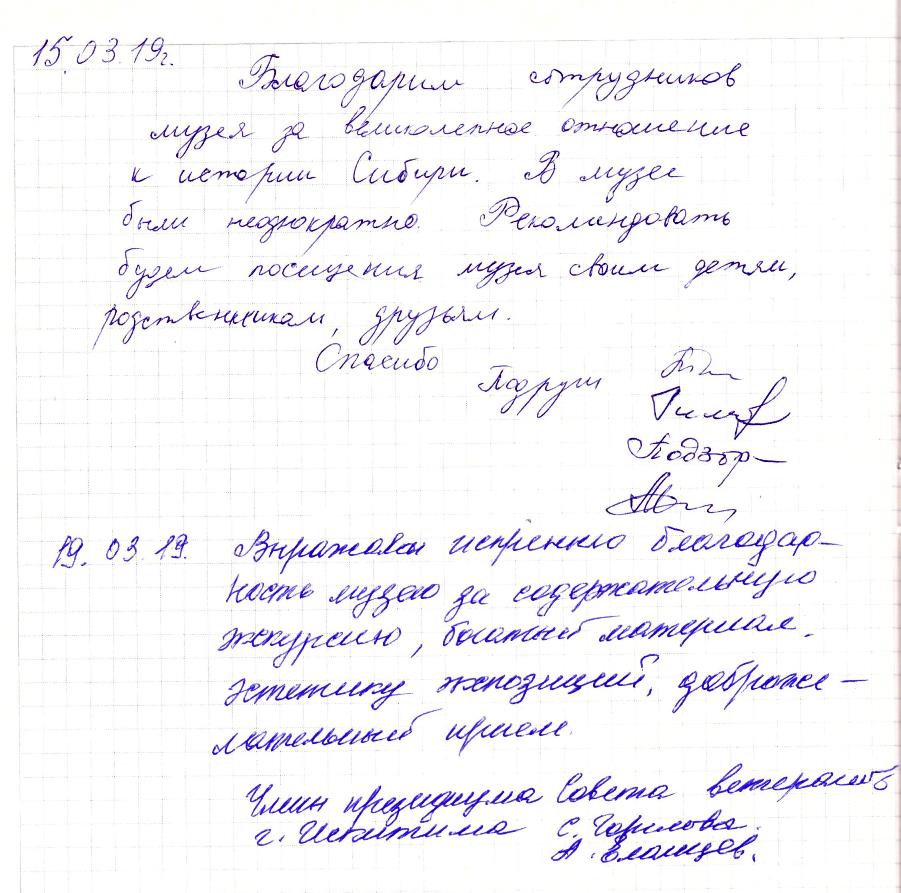 15.03.19г.
Благодарим сотрудников
музея за великолепное отношение
к истории Сибири. В музее
были неоднократно. Рекомендовать
будем посещения музея своим детям,
родственникам, друзьям.
Спасибо
Подруги
Подзор
19.03.19. Выражаем искреннюю благодар-
ность музею за содержательную
экскурсию, богатый материал,
эстетику экспозиций, доброже-
лательный прием.
Члены президиума Совета ветеранов
г. Искитима С. Горилова.
А.